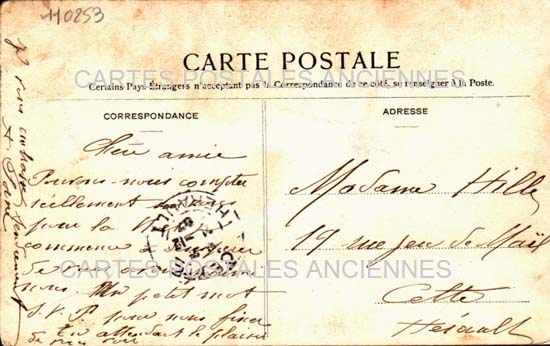 110253
CARTE POSTALE
CARTES POSTALES ANCIENNES
Certains Pays Étrangers n'acceptant pas la Correspondance de ce côté, se renseigner à la Poste.
CORRESPONDANCE
ADRESSE
Chère amie
Pouvons-nous compter
réellement
pour la
commence à
de
nous Un petit mot
S.V.P. pour nous fixer
En attendant le plaisir
de vous voir
Je vous embrasse
Madame Hill
19 rue Jeu de Mail
Cette
Hérault
CARTES POSTALES ANCIENNES
CETTE
HERAULT